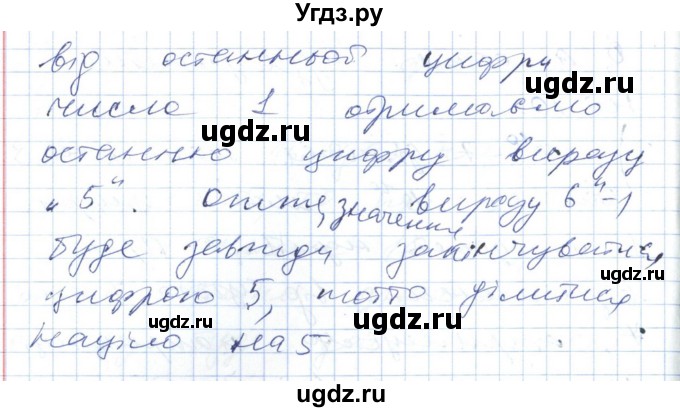 Угдз.ру
від останньої цифри
числа 1 отримаємо
останню цифру виразу
„5“. Отже, значення виразу 6ⁿ-1
буде завжди закінчуватися
цифрою 5, тобто ділитися
націло на 5.
ugdz.ru
ugdz.ru
ugdz.ru
ugdz.ru
ugdz.ru
ugdz.ru
ugdz.ru
ugdz.ru
ugdz.ru